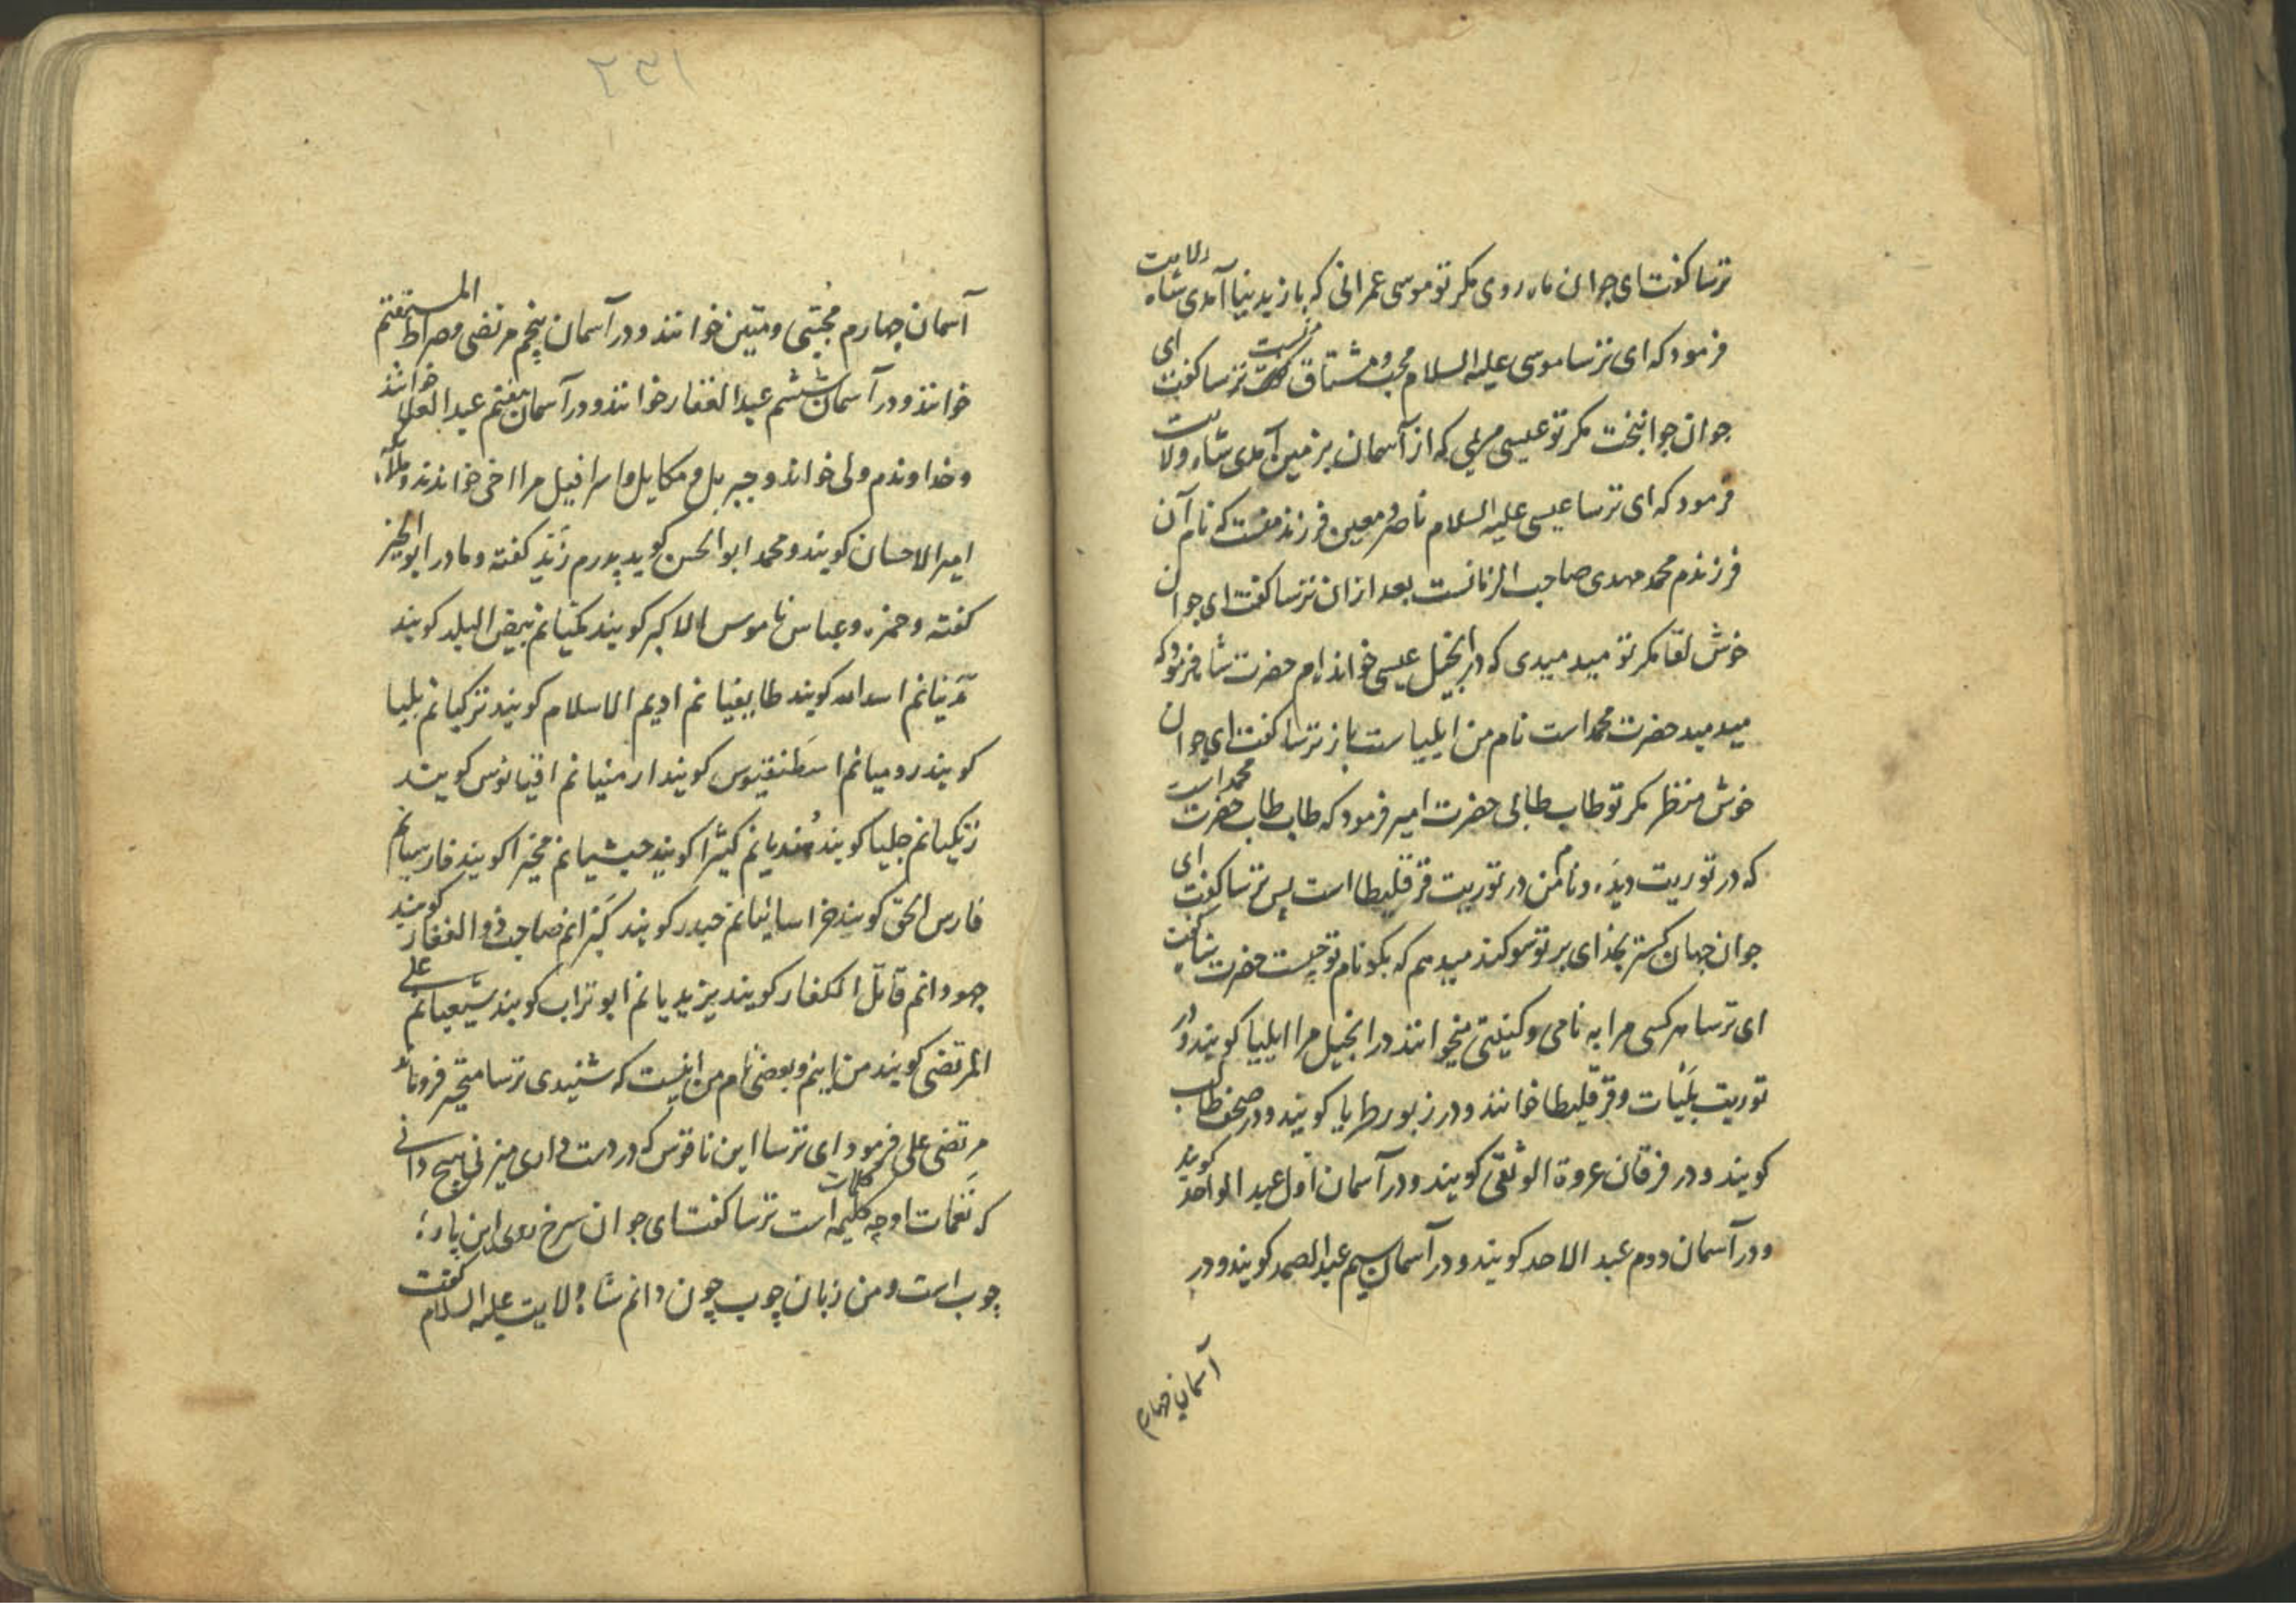 ترسا کفت ای جوان ماه روی مکر تو موسی عمرانی که باز بدینیا آمدی شاه ولایت
فرمود که ای ترسا موسی علیه السلام محب و مشتاق منست ترسا کفت ای
جوان جوانبخت مکر تو عیسی مریمی که از آسمان بزمین آمدی شاه ولایت
فرمود که ای ترسا عیسی علیه السلام ناصر و معین فرزند منست که نام آن
فرزندم محمد مهدی صاحب الزمانست بعد از ان ترسا کفت ای جوان
خوش لقا مکر تو مید میدی که در انجیل عیسی خوانده ام حضرت شاه فرمود که
مید مید حضرت محمد است نام من ایلیا ست باز ترسا کفت ای جوان
خوش منظر مکر تو طاب طابی حضرت امیر فرمود که طاب طاب حضرت محمد است
که در توریت دیده و نام من در توریت قرقلیطا است پس ترسا کفت ای
جوان جهان کستر بخدای بر تو سوکند میدهم که بکو نام تو چیست حضرت شاه کفت
ای ترسا هر کسی مرا به نامی و کنیتی میخوانند در انجیل مرا ایلییا کویند و در
توریت بلیات و قرقلیطا خوانند و در زبور طرایا کویند و در صحف طاب
کویند و در فرقان عروة الوثقی کویند و در آسمان اول عبد الواحد کویند
و در آسمان دوم عبد الاحد کویند و در آسمان سیم عبد الصمد کویند و در
آسمان چهارم
۲۳۱
آسمان چهارم مجتبی و متین خوانند و در آسمان پنجم مرتضی و صراط المستقیم
خوانند و در آسمان ششم عبد الغفار خوانند و در آسمان هفتم عبد العلا خوانند
و خداوندم ولی خواند و جبریل و مکایل و اسرافیل مرا اخی خوانند و
امیر الاحسان کویند و محمد ابو الحسن کوید پدرم زید کفته و مادر ابو الخیر
کفته و حمزه و عباس ناموس الاکبر کویند مکیانم بیض البلد کویند
مدنیانم اسد الله کویند طایفیانم ادیم الاسلام کویند ترکیانم بلیا
کویند رومیانم اسطنفینوس کویند ارمنیانم اقیانوس کویند
زنکیانم جلیا کویند هندیانم کیثرا کویند حبشیانم مخیرا کویند فارسیانم
فارس الحق کویند خراسانیانم حیدر کویند کبرانم صاحب ذو الفقار کویند
جهودانم قاتل الکفار کویند یزیدیانم ابو تراب کویند شیعیانم علی
المرتضی کویند من اینم و بعضی نام من اینست که شنیدی ترسا متحیر فروماند
مرتضی علی فرمود ای ترسا این ناقوس که در دست داری میزنی هیچ دانی
که نغمات او چه کلیمه کلمات است ترسا کفت ای جوان سرخ روی این پاره
چوب است و من زبان چوب چون دانم شاه ولایت علیه السلام کفت